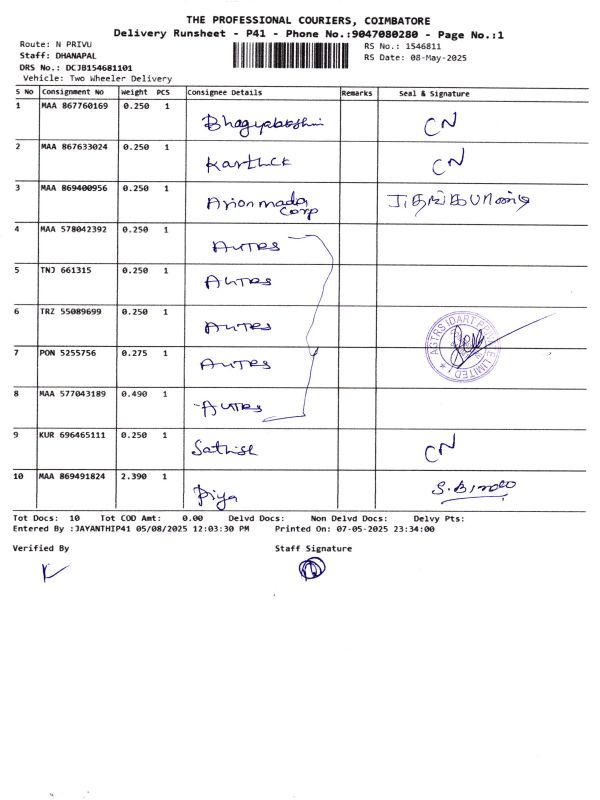 THE PROFESSIONAL COURIERS, COIMBATORE
Delivery Runsheet - P41 - Phone No.:9047080280 - Page No.:1
Route: N PRIVU
RS No.: 1546811
Staff: DHANAPAL
RS Date: 08-May-2025
DRS No.: DCJB154681101
Vehicle: Two Wheeler Delivery
S No Consignment No Weight PCS Consignee Details Remarks Seal & Signature
1 MAA 867760169 0.250 1 Bhagyalakshmi CN
2 MAA 867633024 0.250 1 Karthick CN
3 MAA 869400956 0.250 1
Corp
4 MAA 578042392 0.250 1
5 TNJ 661315 0.250 1
6 TRZ 55089699 0.250 1
7 PON 5255756 0.275 1
8 MAA 577043189 0.490 1
9 KUR 696465111 0.250 1 Sathish CN
10 MAA 869491824 2.390 1 Priya
Tot Docs: 10 Tot COD Amt: 0.00 Delvd Docs: Non Delvd Docs: Delvy Pts:
Entered By :JAYANTHIP41 05/08/2025 12:03:30 PM Printed On: 07-05-2025 23:34:00
Verified By Staff Signature